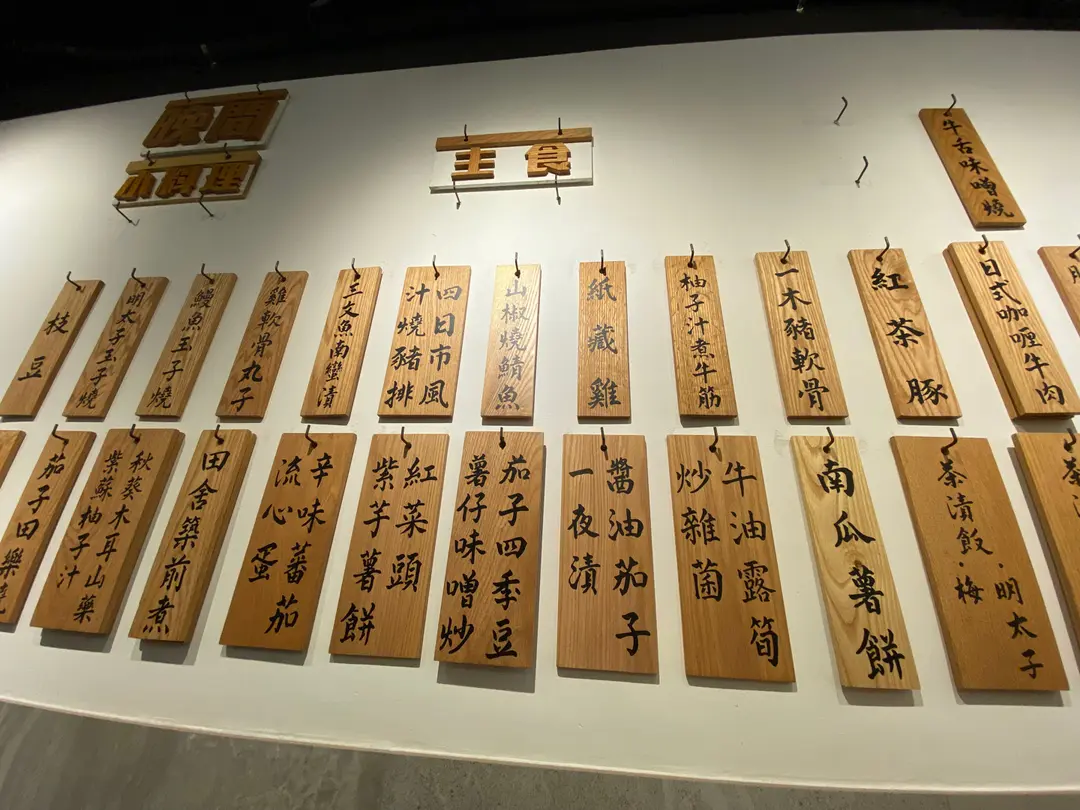 晚間
小料理
主食
牛舌味噌燒
枝豆
明太子玉子燒
鰻魚玉子燒
雞軟骨丸子
三文魚南蠻漬
四日市風
汁燒豬排
山椒燒鯖魚
紙藏雞
柚子汁煮牛筋
一木豬軟骨
紅茶豚
日式咖喱牛肉
茄子田樂燒
秋葵木耳山藥
紫蘇柚子汁
田舍築前煮
辛味蕃茄
流心蛋
紅菜頭
紫芋薯餅
茄子四季豆
薯仔味噌炒
醬油茄子
一夜漬
牛油露筍
炒雜菌
南瓜薯餅
茶漬飯·梅
·明太子